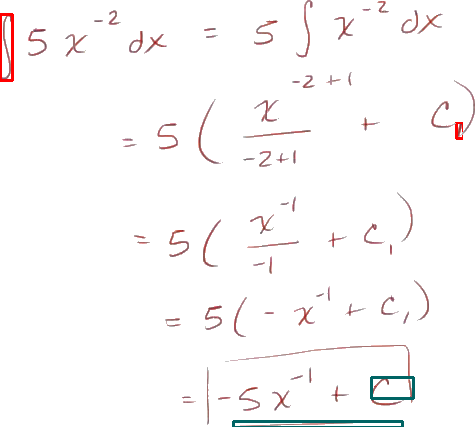 ∫ 5 x^{-2} dx = 5 ∫ x^{-2} dx
= 5 ( \frac{x^{-2+1}}{-2+1} + C_1 )
= 5 ( \frac{x^{-1}}{-1} + C_1 )
= 5 ( - x^{-1} + C_1 )
= -5 x^{-1} + C